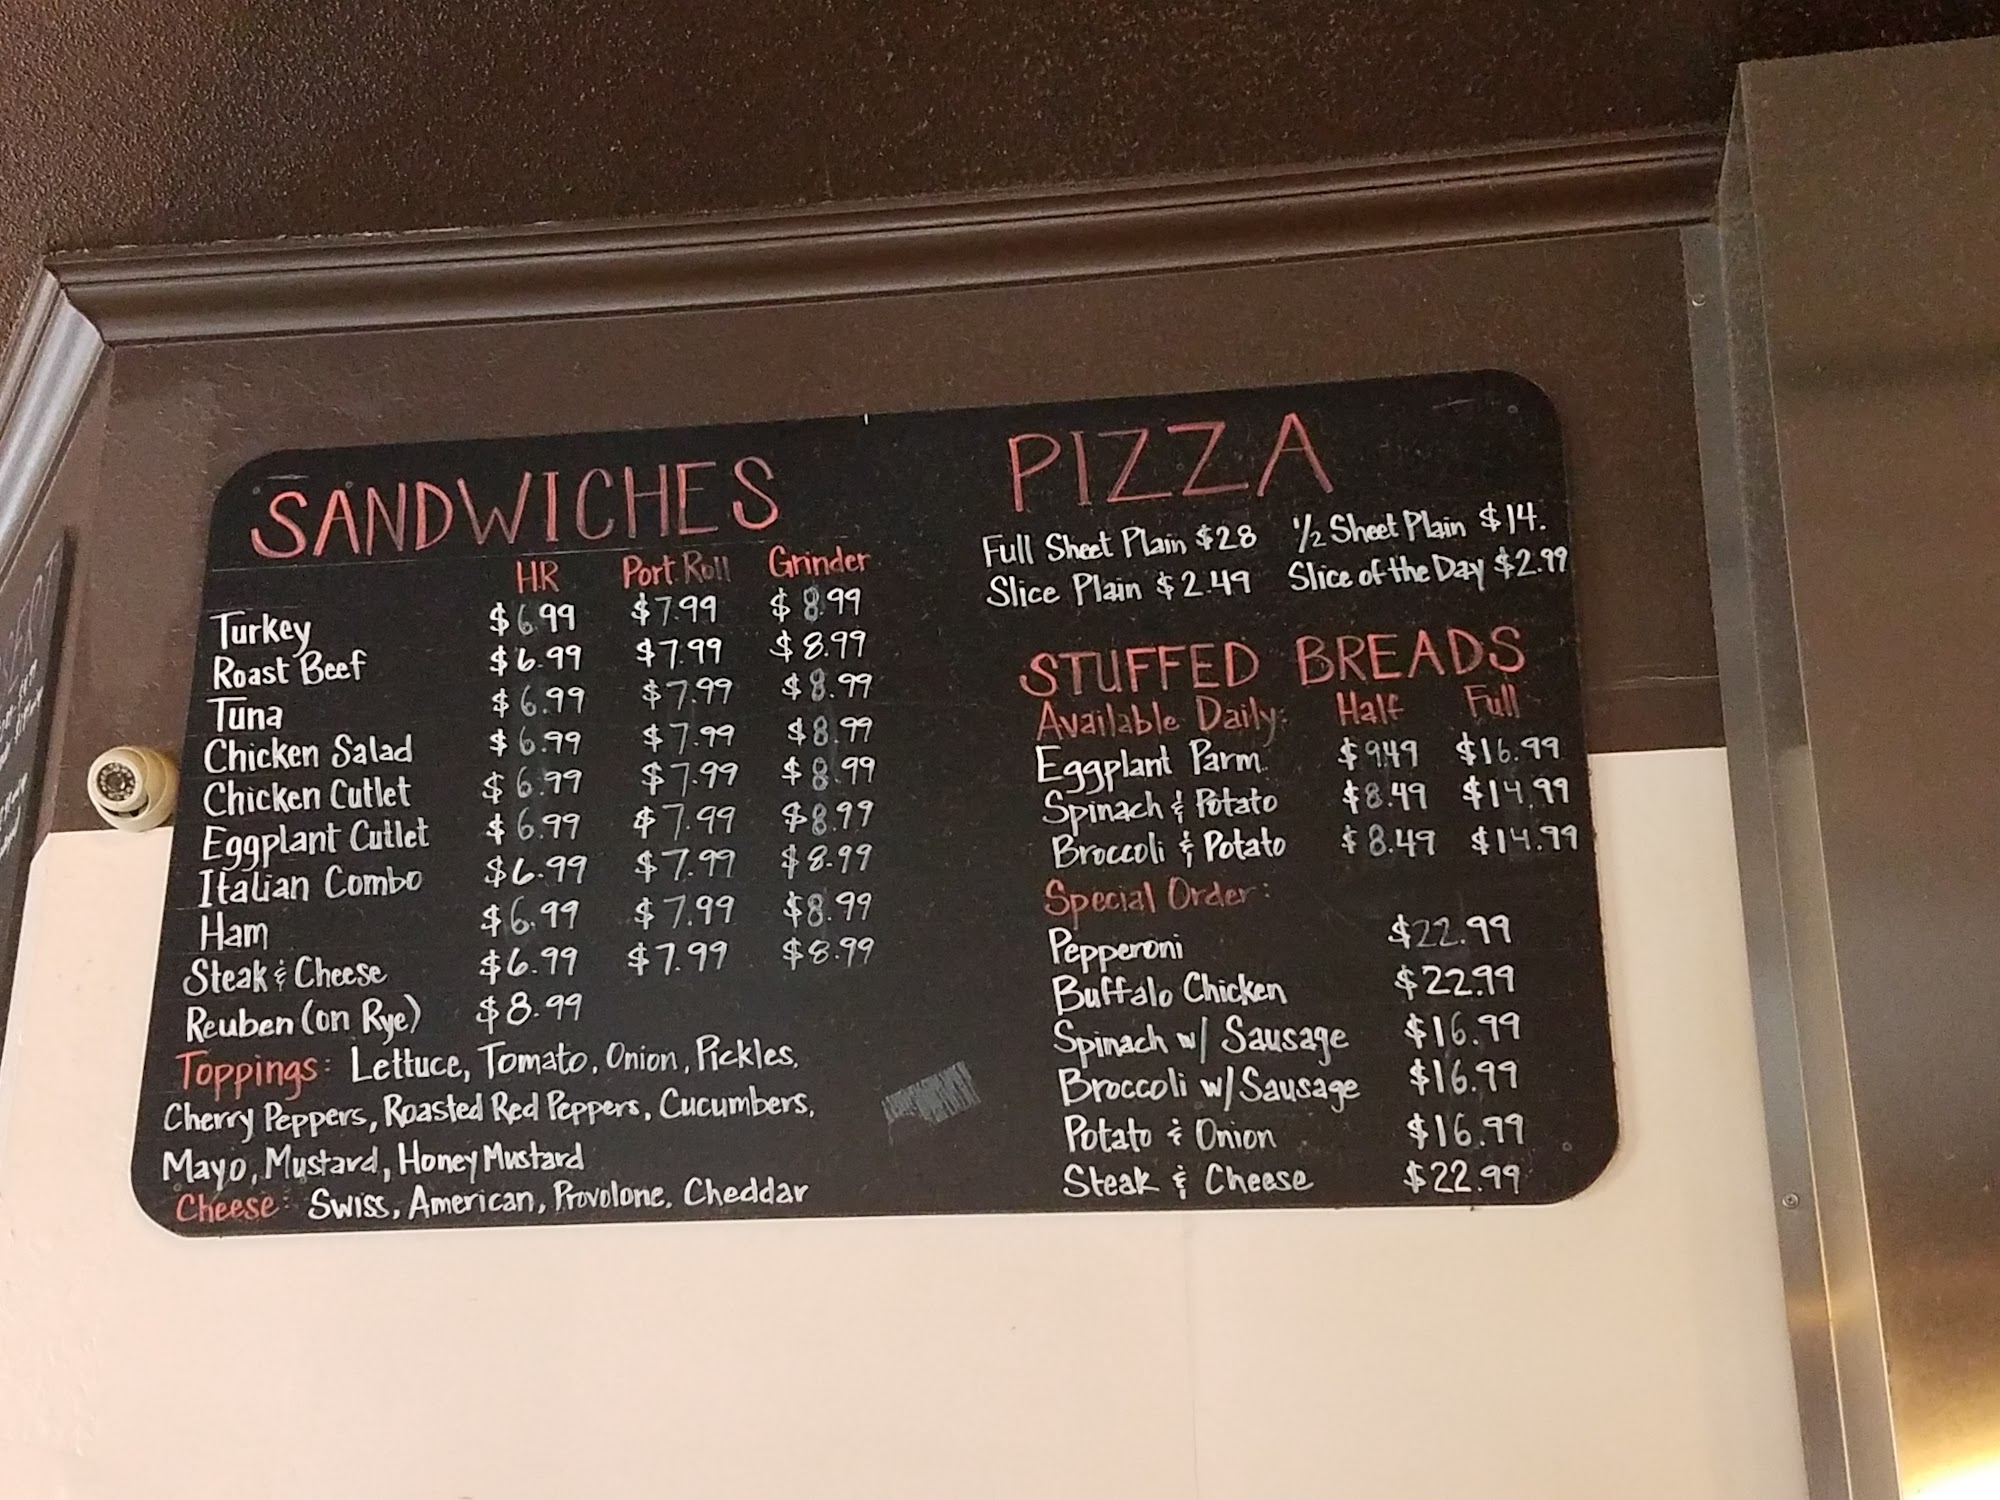 SANDWICHES
HR Port. Roll Grinder
Turkey $6.99 $7.99 $8.99
Roast Beef $6.99 $7.99 $8.99
Tuna $6.99 $7.99 $8.99
Chicken Salad $6.99 $7.99 $8.99
Chicken Cutlet $6.99 $7.99 $8.99
Eggplant Cutlet $6.99 $7.99 $8.99
Italian Combo $6.99 $7.99 $8.99
Ham $6.99 $7.99 $8.99
Steak & Cheese $6.99 $7.99 $8.99
Reuben (on Rye) $8.99
Toppings: Lettuce, Tomato, Onion, Pickles,
Cherry Peppers, Roasted Red Peppers, Cucumbers,
Mayo, Mustard, Honey Mustard
Cheese: Swiss, American, Provolone, Cheddar
PIZZA
Full Sheet Plain $28 1/2 Sheet Plain $14.
Slice Plain $2.49 Slice of the Day $2.99
STUFFED BREADS
Available Daily: Half Full
Eggplant Parm. $9.49 $16.99
Spinach & Potato $8.49 $14.99
Broccoli & Potato $8.49 $14.99
Special Order:
Pepperoni $22.99
Buffalo Chicken $22.99
Spinach w/ Sausage $16.99
Broccoli w/ Sausage $16.99
Potato & Onion $16.99
Steak & Cheese $22.99